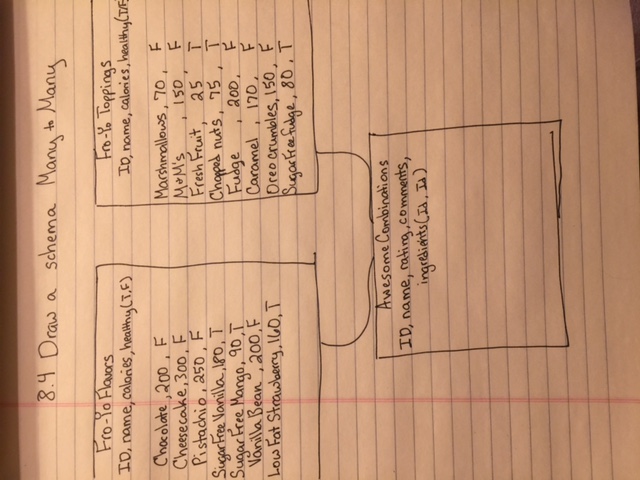 8.4 Draw a schema Many to Many
Fro-Yo Flavors
ID, name, calories, healthy(T,F)
Chocolate, 200, F
Cheesecake, 300, F
Pistachio, 250, F
Sugar Free Vanilla, 180, T
Sugar Free Mango, 90, T
Vanilla Bean, 200, F
Low Fat Strawberry, 160, T
Fro-Yo Toppings
ID, name, calories, healthy(T/F)
Marshmallows, 70, F
M+M's, 150, F
Fresh Fruit, 25 T
Chopped nuts, 75, T
Fudge, 200, F
Caramel, 170, F
Oreo crumbles, 150, F
Sugar Free fudge, 80, T
Awesome Combinations
ID, name, rating, comments,
ingredients(Id, Id)